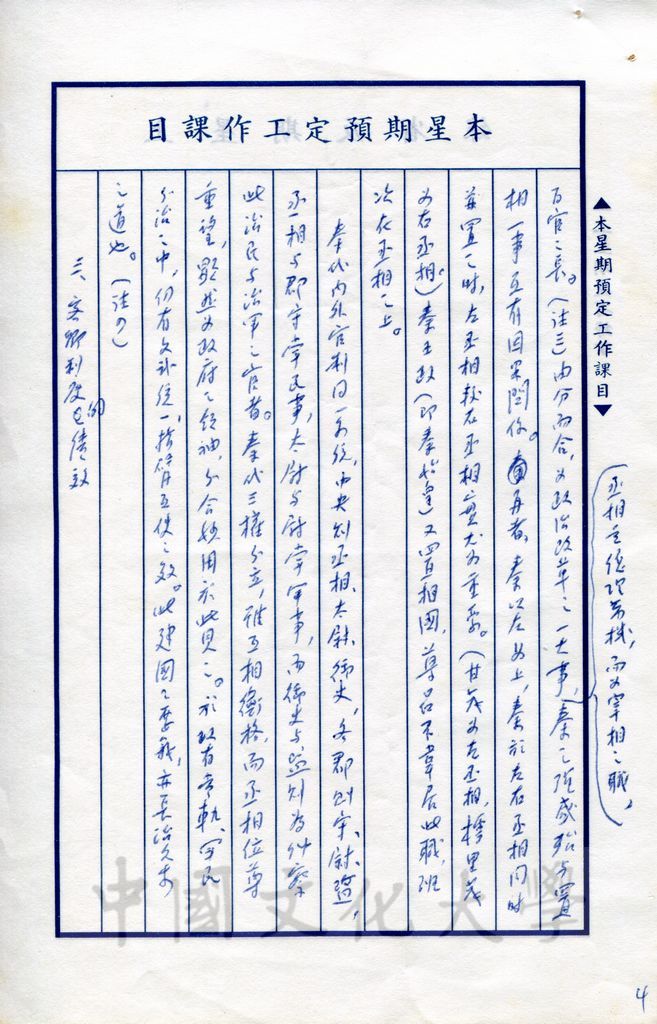 目課作工定預期星本
▲本星期預定工作課目▼
丞相主總理萬機,而為宰相之職,
百官之長。(註三)由分而合,為政治改革之一大事,秦之強盛殆與置
相一事互有因果關係。再者,秦以左為上,秦於左右丞相同時
並置之時,左丞相較右丞相實尤為重要。(甘茂為左丞相,樗里疾
為右丞相)秦王政(即秦始皇)又置相國,尊呂不韋居此職班
次在丞相之上。
秦代內外官制同一系統,中央則丞相、太尉、御史,各郡則守、尉、監,
丞相與郡守掌民事,太尉與尉掌軍事,而御史與監則為糾察
此治民與治軍之官者。秦代三權分立,雖互相衡格,而丞相位尊
重望,儼然為政府之領袖,分合妙用於此見之。於政有常軌、軍民
分治之中,仍有文武統一,指臂互使之效。此建國之要義,亦長治久安
之道也。(註四)
三、客卿制度的績效
4
中國文化大學